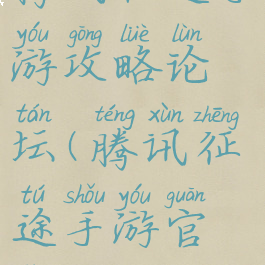 yóu gōng lüè lùn
游攻略论
tán téng xùn zhēng
坛(腾讯征
tú shǒu yóu guān
途手游官